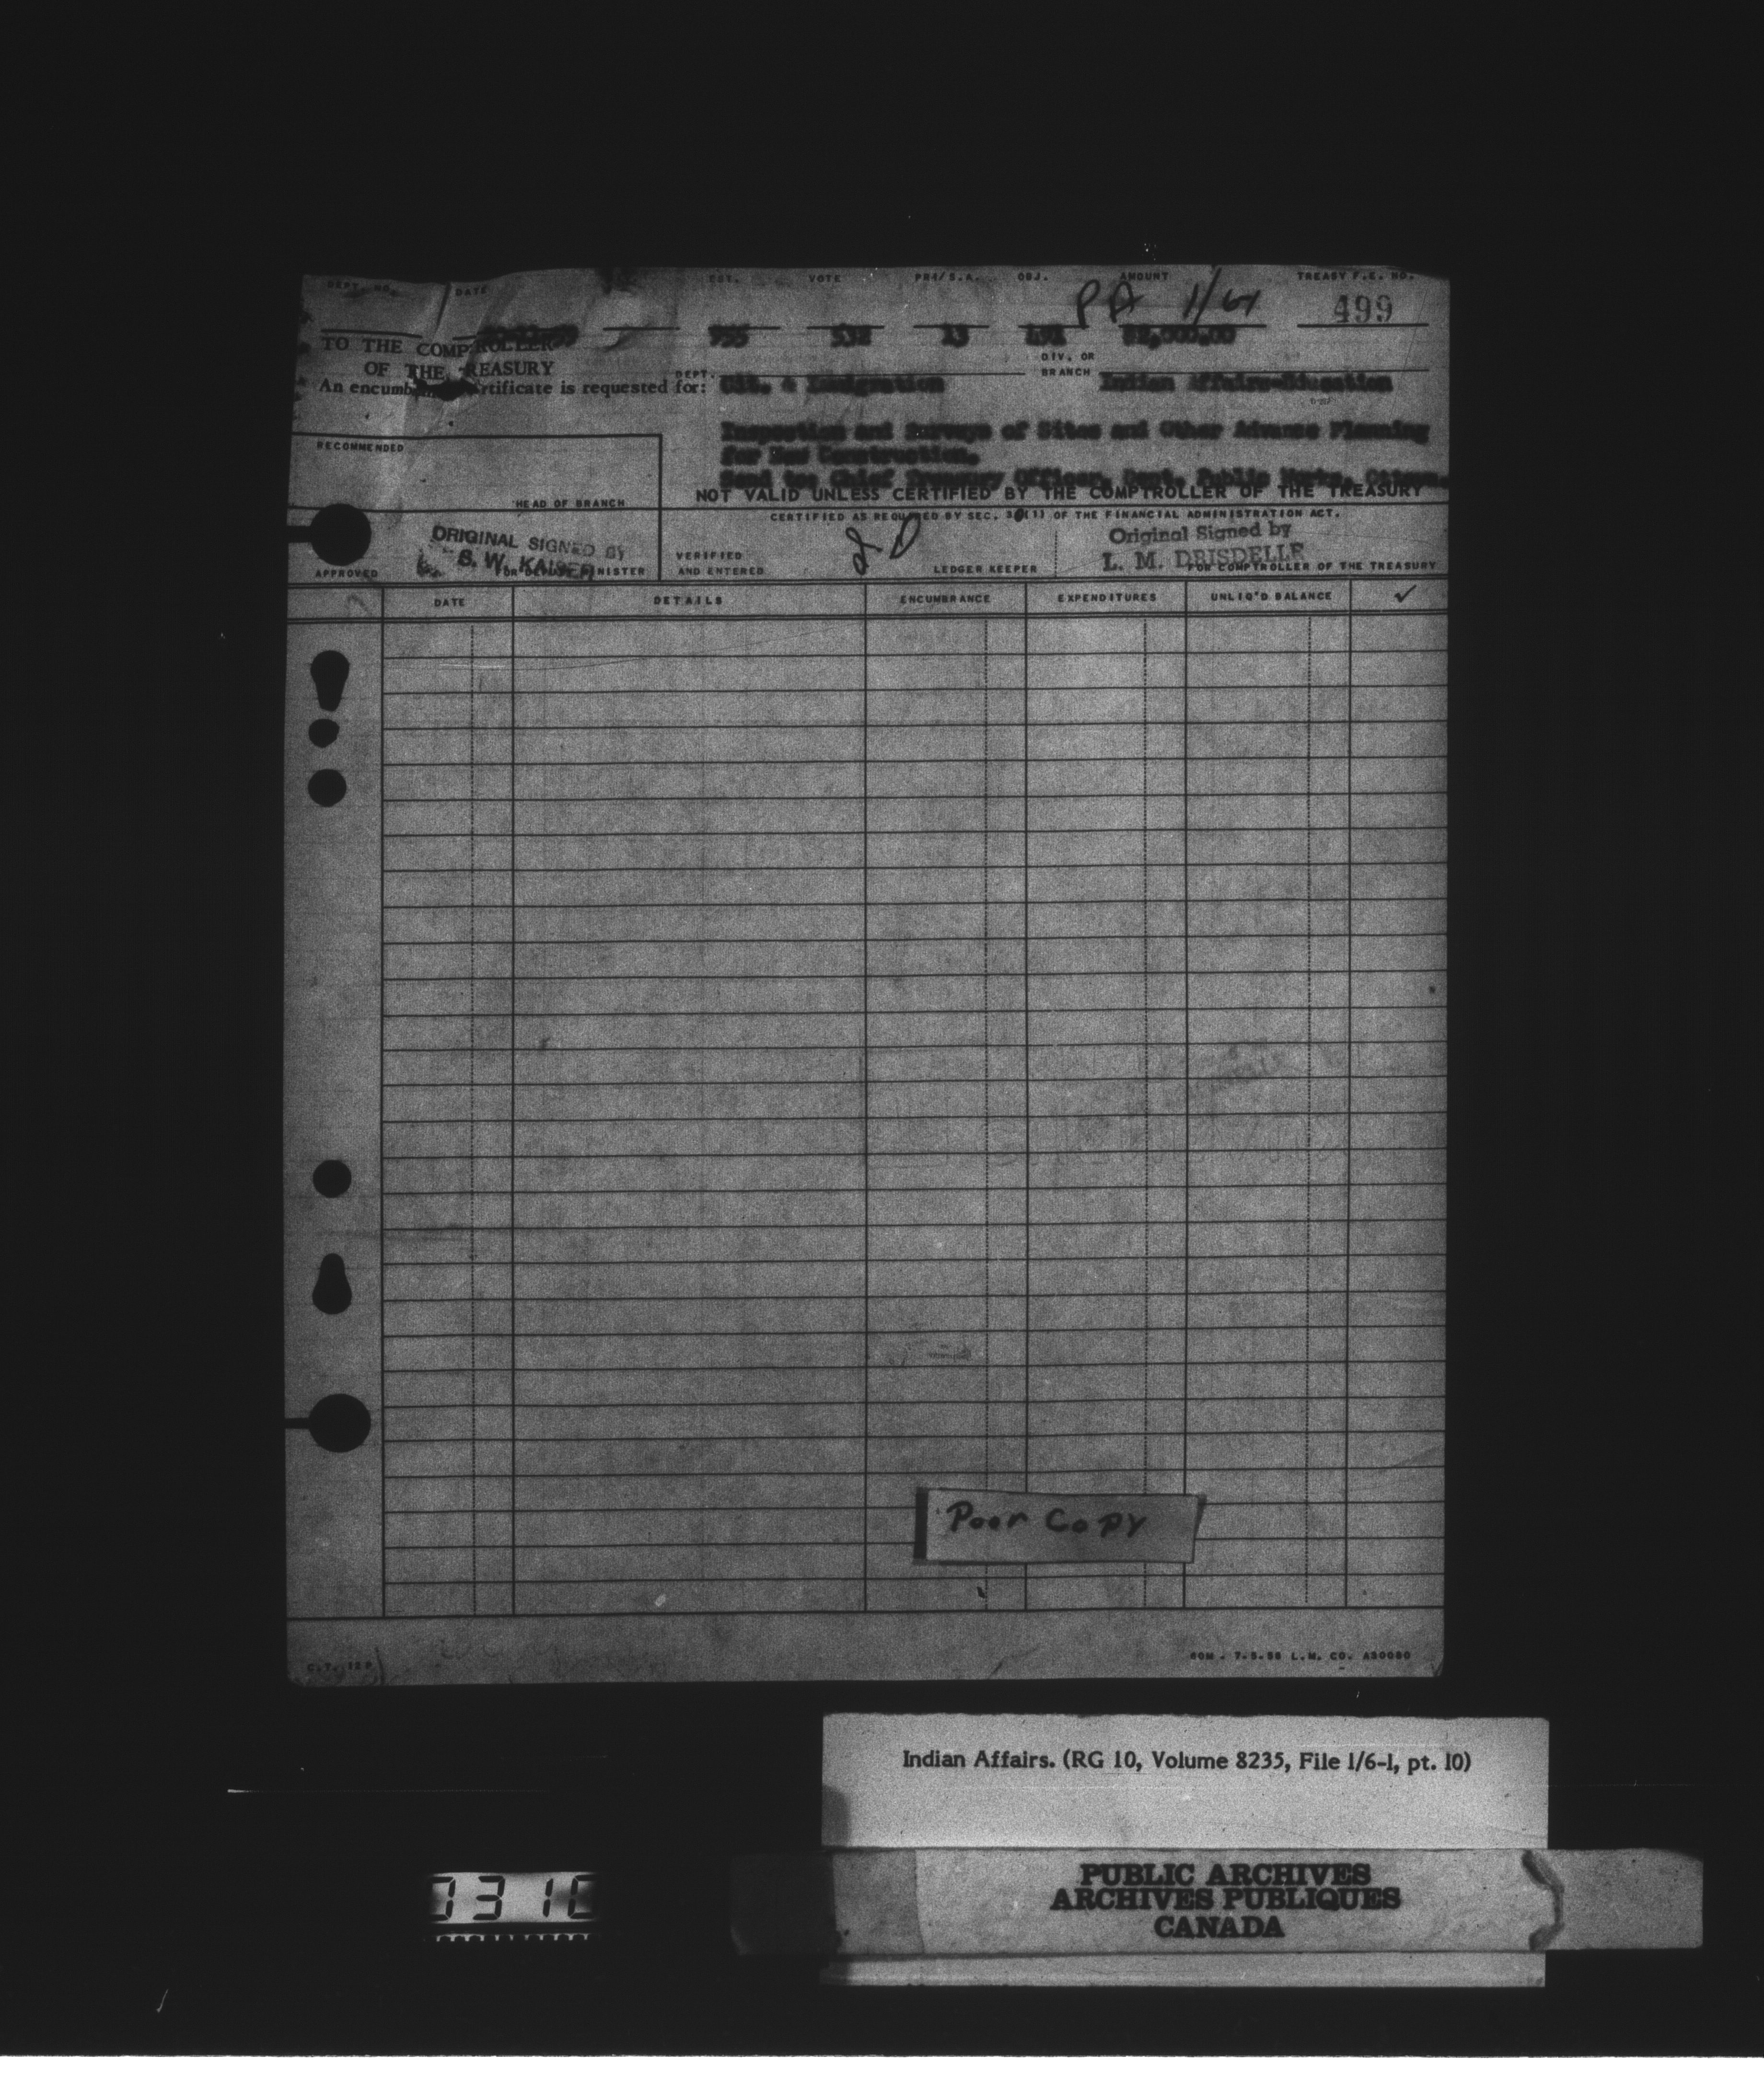 DEPT. NO. DATE EST. VOTE PRI/S.A. OBJ. AMOUNT TREASY F.E. NO.
PA 1/61
499
955 532 13
TO THE COMPTROLLER
OF THE TREASURY
DIV. OR
BRANCH
An encumb rtificate is requested for: DEPT. Cit. & Immigration Indian Affairs-Education
Inspection and Surveys of Sites and Other Advance Planning
for New Construction.
Send to: Chief Treasury Officer, Dept. Public Works, Ottawa.
RECOMMENDED
HEAD OF BRANCH
NOT VALID UNLESS CERTIFIED BY THE COMPTROLLER OF THE TREASURY
CERTIFIED AS REQUIRED BY SEC. 30(1) OF THE FINANCIAL ADMINISTRATION ACT.
ORIGINAL SIGNED BY
S. W. KAISER
APPROVED FOR DEPUTY MINISTER
VERIFIED
AND ENTERED
LEDGER KEEPER
Original Signed by
L. M. DRISDELLE
FOR COMPTROLLER OF THE TREASURY
DATE DETAILS ENCUMBRANCE EXPENDITURES UNLIQ'D BALANCE ✓
Poor Copy
C.T. 12P
60M - 7.5.58 L.M. CO. A30080
Indian Affairs. (RG 10, Volume 8235, File 1/6-1, pt. 10)
PUBLIC ARCHIVES
ARCHIVES PUBLIQUES
CANADA